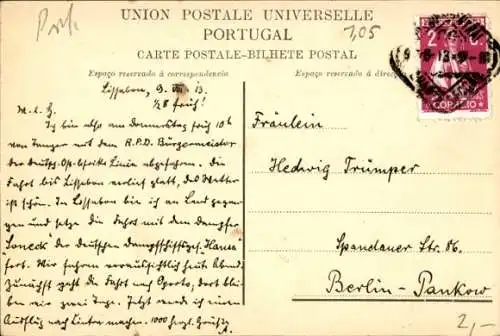 Port.
UNION POSTALE UNIVERSELLE
1,05
PORTUGAL
CARTE POSTALE-BILHETE POSTAL
Espaço reservado á correspondencia
Espaço reservado á direc
CORREIO
Lissabon, 9. VIII 13.
1/2 8 früh!
M. l. G.
Ich bin also am Donnerstag früh 10h
von Tanger mit dem R.P.D. Bürgermeister
der deutsch. Ost-Afrika Linie abgefahren. Die
Fahrt bis Lissabon verlief glatt, das Wetter
ist schön. In Lissabon bin ich an Land gegan-
gen und setze die Fahrt mit dem Dampfer
"Soneck" der Deutschen Dampfschiffsges. "Hansa"
fort. Wir fahren voraussichtlich heut Abend.
Zunächst geht die Fahrt nach Oporto, dort blei-
ben wir zwei Tage. Jetzt werde ich einen
Ausflug nach Cintra machen. 1000 herzl. Grüße
Fräulein
Hedwig Trümper
Spandauer Str. 86.
Berlin-Pankow
2,-